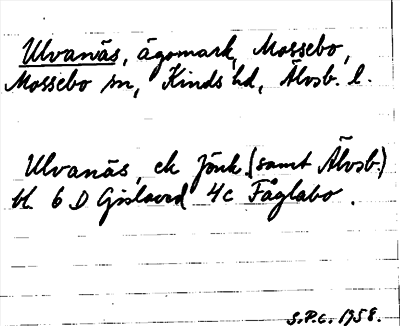 Ulvanäs, ägomark, Mossebo,
Mossebo sn, Kinds hd, Älvsb. l.
Ulvanäs, ek Jönk. (samt Älvsb.)
bl. 6 D Gislaved 4c Fåglabo.
S.P.c. 1958.